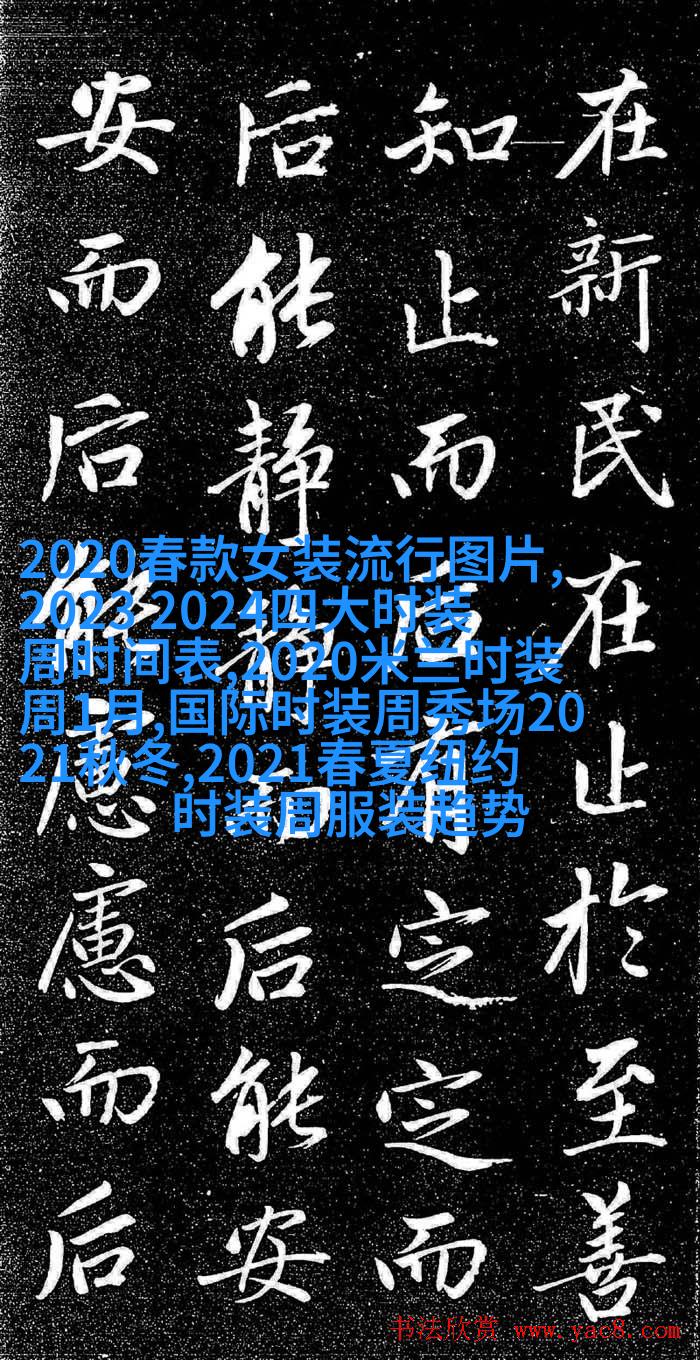 在新民在止於至善
知止而后有定定而
后能静静而后能安
安而后能慮慮而后
2020春款女装流行图片,
2023 2024四大时装
周时间表,2020米兰时装
周1月,国际时装周秀场20
21秋冬,2021春夏纽约
时装周服装趋势
书法欣赏 www.yac8.com